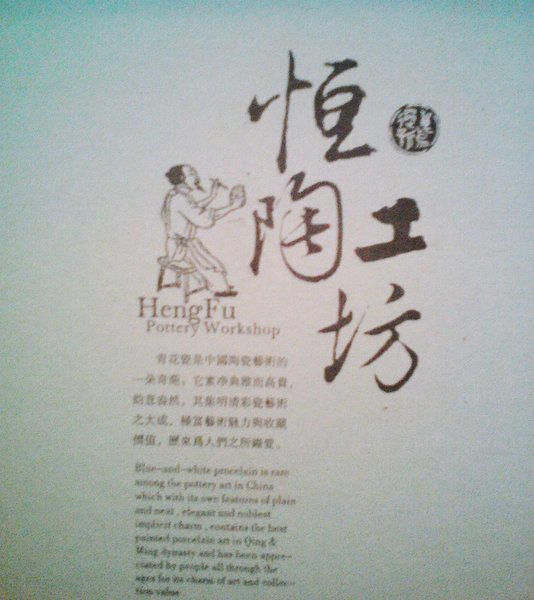 恒
陶工
坊
HengFu
Pottery Workshop
青花瓷是中國陶瓷藝術的
一朵奇葩，它素净典雅而高貴，
韵意盎然，其集明清彩瓷藝術
之大成，極富藝術魅力與收藏
價值，歷來爲人們之所鍾愛。
Blue-and-white procelain is rare
among the pottery art in China
which with its own features of plain
and neat , elegant and noblest
implicit charm , contains the best
painted porcelain art in Qing &
Ming dynasty and has been appre-
ciated by people all through the
ages for its charm of art and collec-
tion value